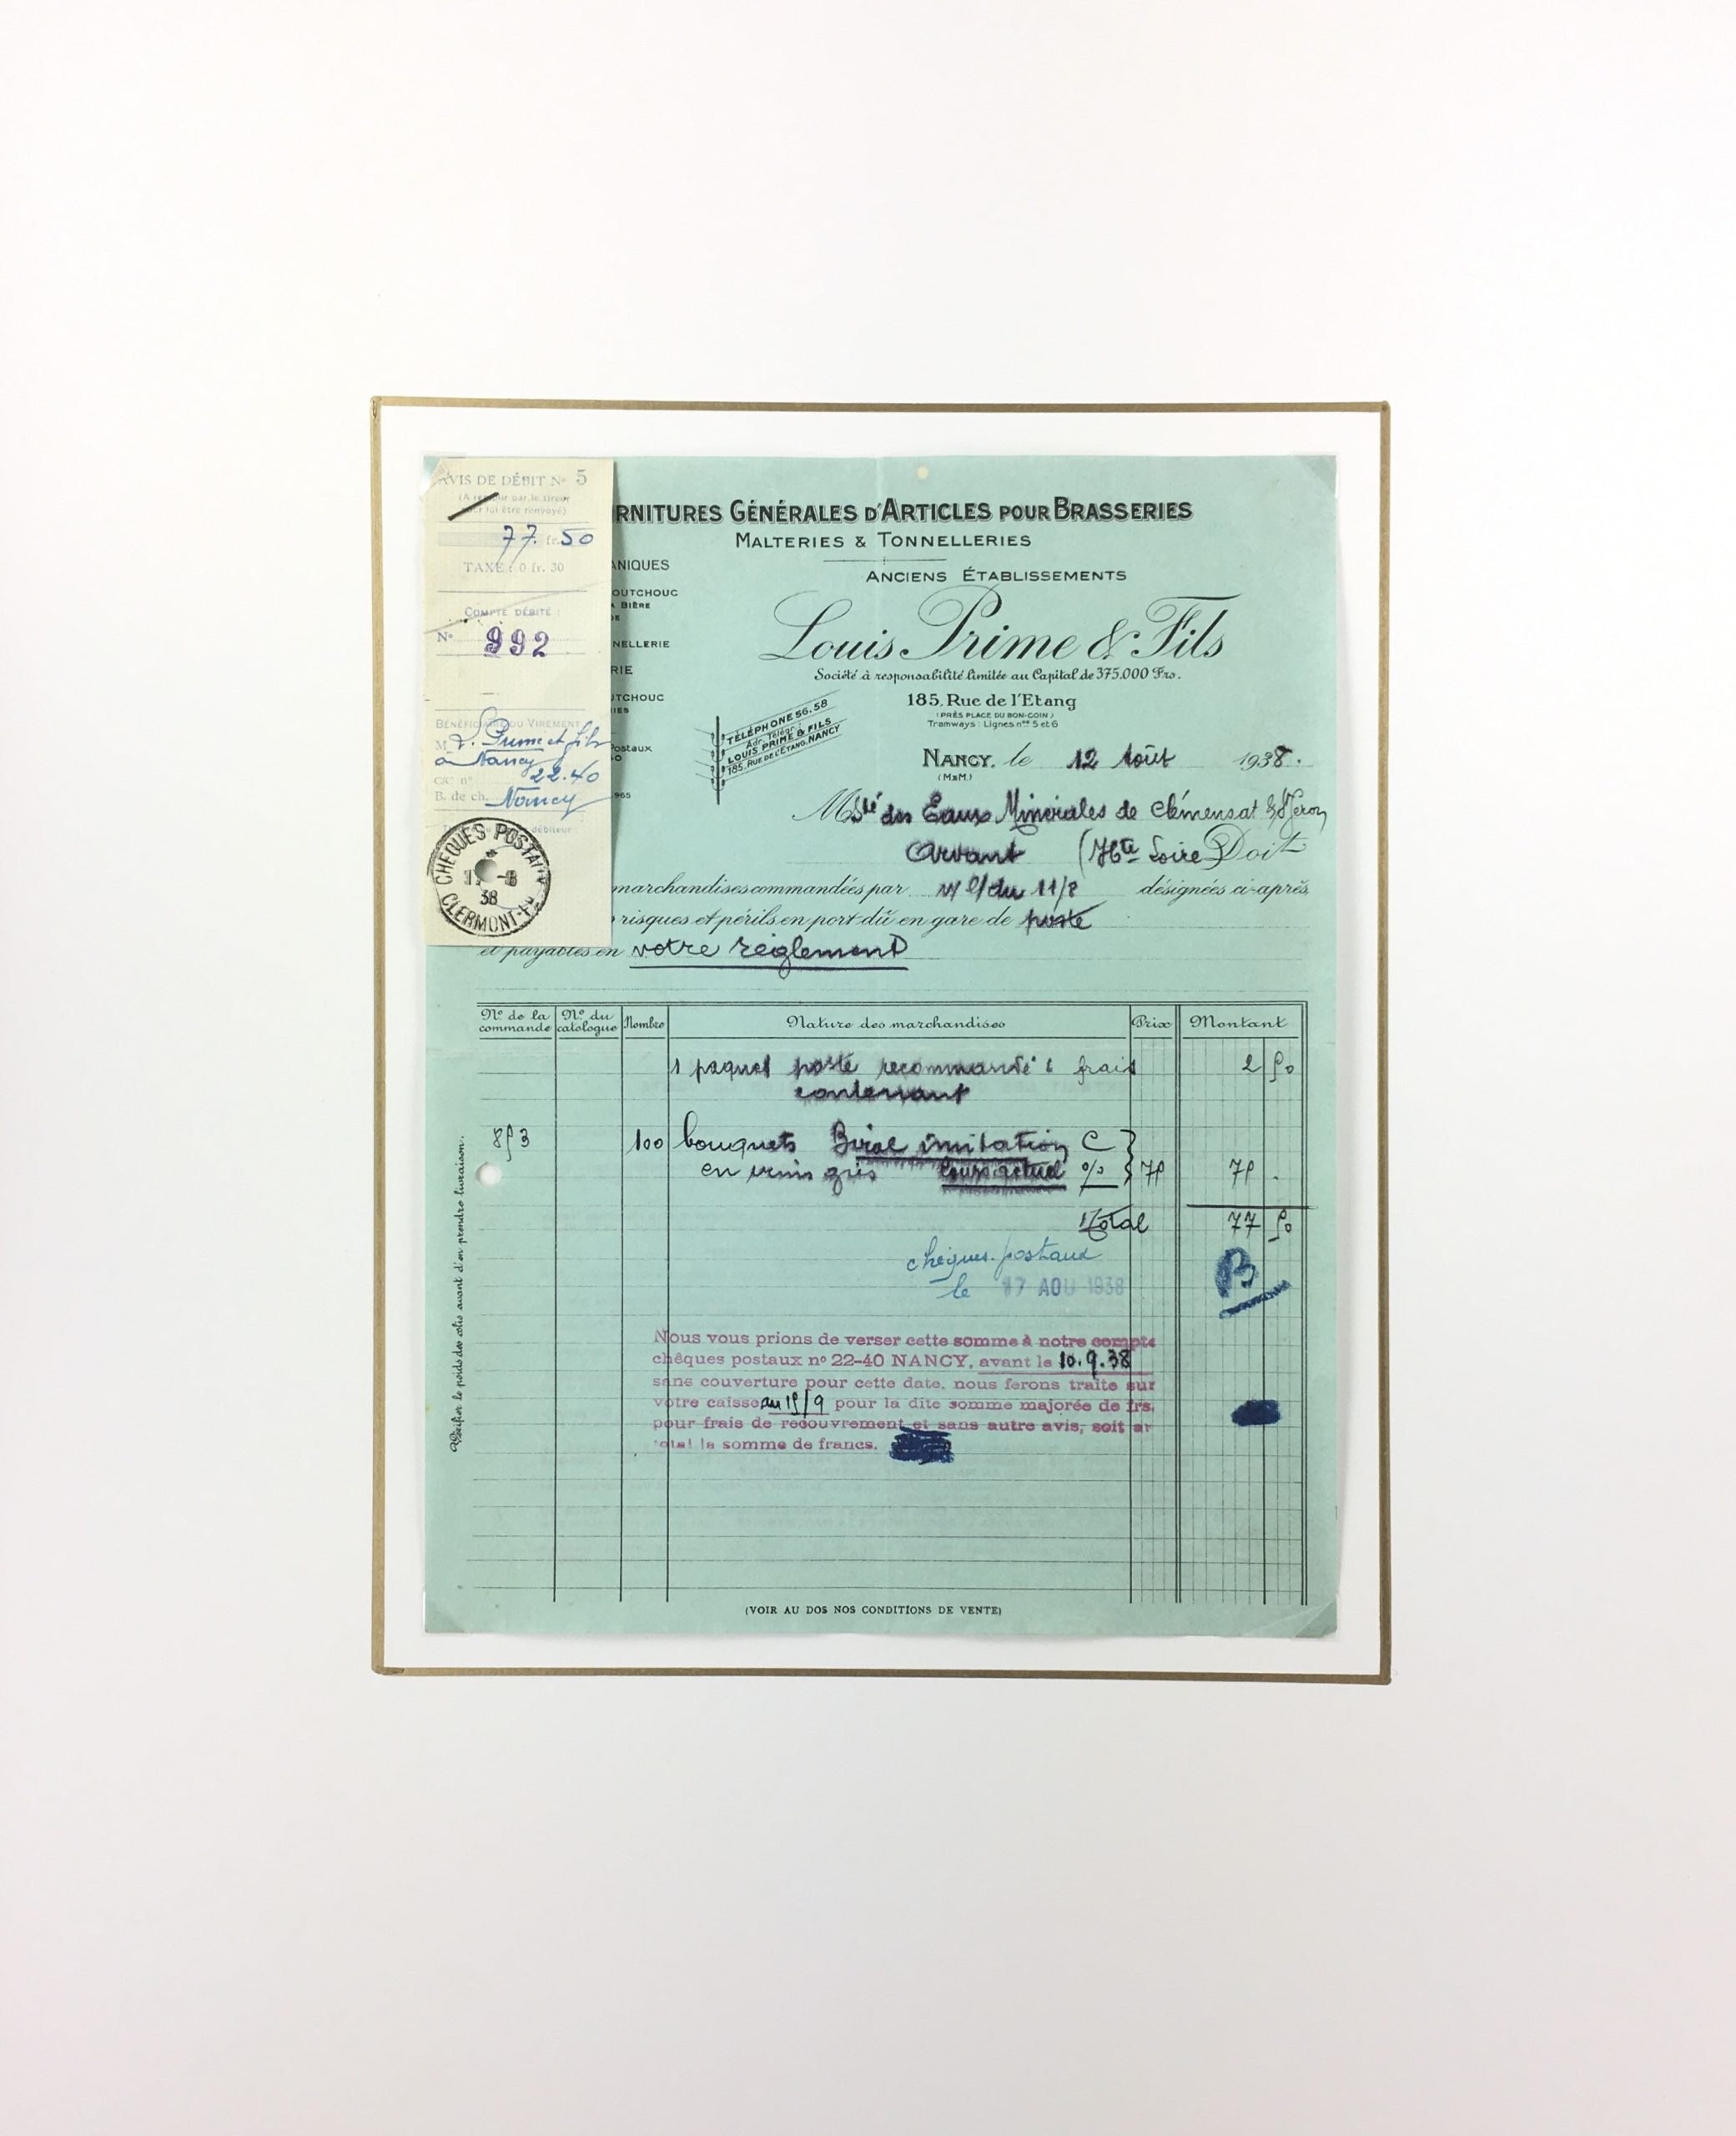 AVIS DE DÉBIT Nº 5
77. fr. 50
TAXE : 0 fr. 30
COMPTE DÉBITÉ :
Nº 992
BÉNÉFICIAIRE DU VIREMENT
M L. Prime et fils
à Nancy
C/C nº 22.40
B. de ch. Nancy
débiteur :
CHEQUES POSTAUX
38
CLERMONT-Fd
RNITURES GÉNÉRALES D'ARTICLES POUR BRASSERIES
MALTERIES & TONNELLERIES
ANIQUES
OUTCHOUC
BIÈRE
DE
NELLERIE
RIE
UTCHOUC
IES
Postaux
965
ANCIENS ÉTABLISSEMENTS
Louis Prime & Fils
Société à responsabilité limitée au Capital de 375.000 Frs.
185, Rue de l'Etang
(PRÈS PLACE DU BON-COIN)
Tramways : Lignes nos 5 et 6
TÉLÉPHONE 56.58
Adr. Télégr. :
LOUIS PRIME & FILS
185, RUE DE L'ETANG, NANCY
NANCY, le 12 Août 1938.
(M&M)
M Sté des Eaux Minérales de Clémensat &
Arvant (Hte Loire) Doit
marchandises commandées par v/ l/ du 11/8 désignées ci-après
risques et périls en port dû en gare de poste
et payables en votre règlement
Nº de la commande Nº du catalogue Nombre Nature des marchandises Prix Montant
1 paquet poste recommandé : frais 2 50
contenant
853 100 bouquets imitation C
en gris Cours actuel % 75 75 .
Total 77 50
chèques postaux
le 17 AOU 1938
B
Nous vous prions de verser cette somme à notre compte
chêques postaux nº 22-40 NANCY, avant le 10.9.38
sans couverture pour cette date, nous ferons traite sur
votre caisse au 15/9 pour la dite somme majorée de frs.
pour frais de recouvrement et sans autre avis, soit au
total la somme de francs.
Vérifier le poids des colis avant d'en prendre livraison.
(VOIR AU DOS NOS CONDITIONS DE VENTE)